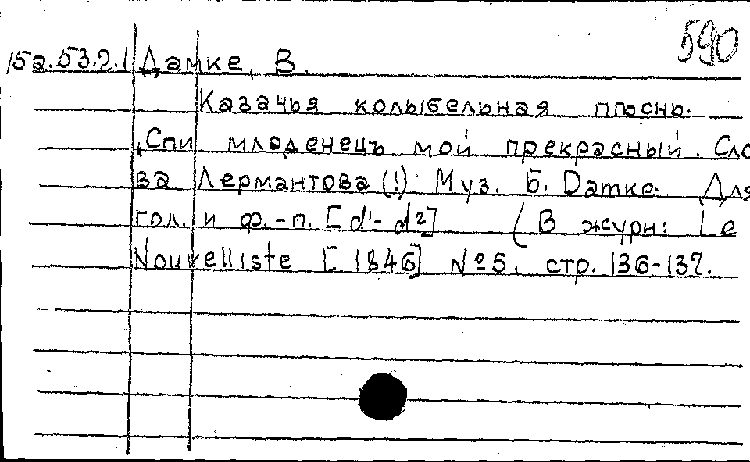 590
15а.53.2.1 Дамке, В.
Казачья колыбельная пѣснь.
"Спи младенецъ мой прекрасный. Сло
ва Лермантова (!). Муз. Б. Damke. Для
гол. и ф.-п. [d¹-d²] (В журн: Le
Nouvelliste [1846] №5, стр. 136-137.